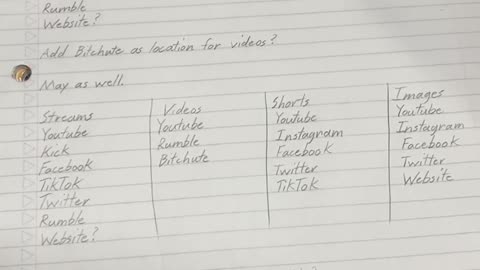 Rumble
Website?
Add Bitchute as location for videos?
May as well.
Streams
Youtube
Kick
Facebook
TikTok
Twitter
Rumble
Website?
Videos
Youtube
Rumble
Bitchute
Shorts
Youtube
Instagram
Facebook
Twitter
TikTok
Images
Youtube
Instagram
Facebook
Twitter
Website